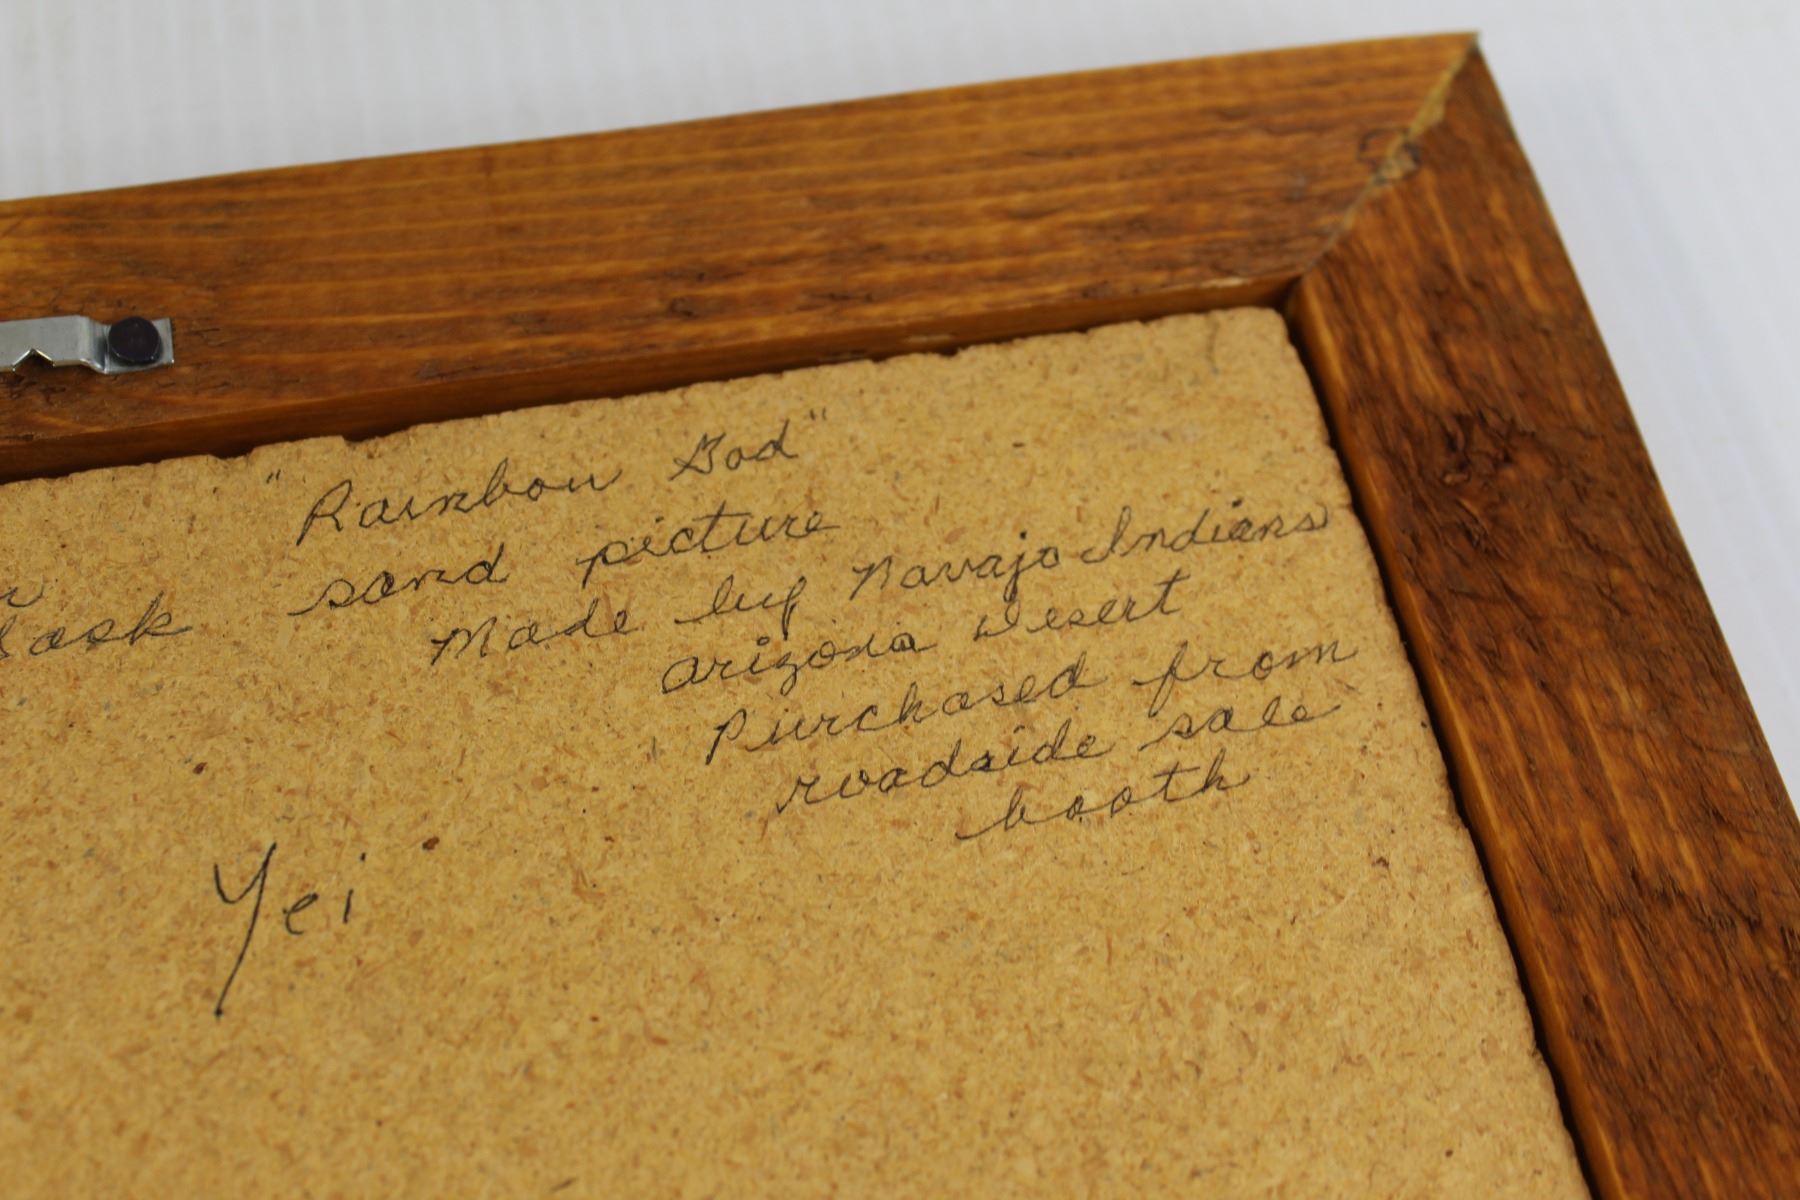 "Rainbow God"
sand picture
Made by Navajo Indians
Arizona Desert
Purchased from
roadside sale
booth
Yei